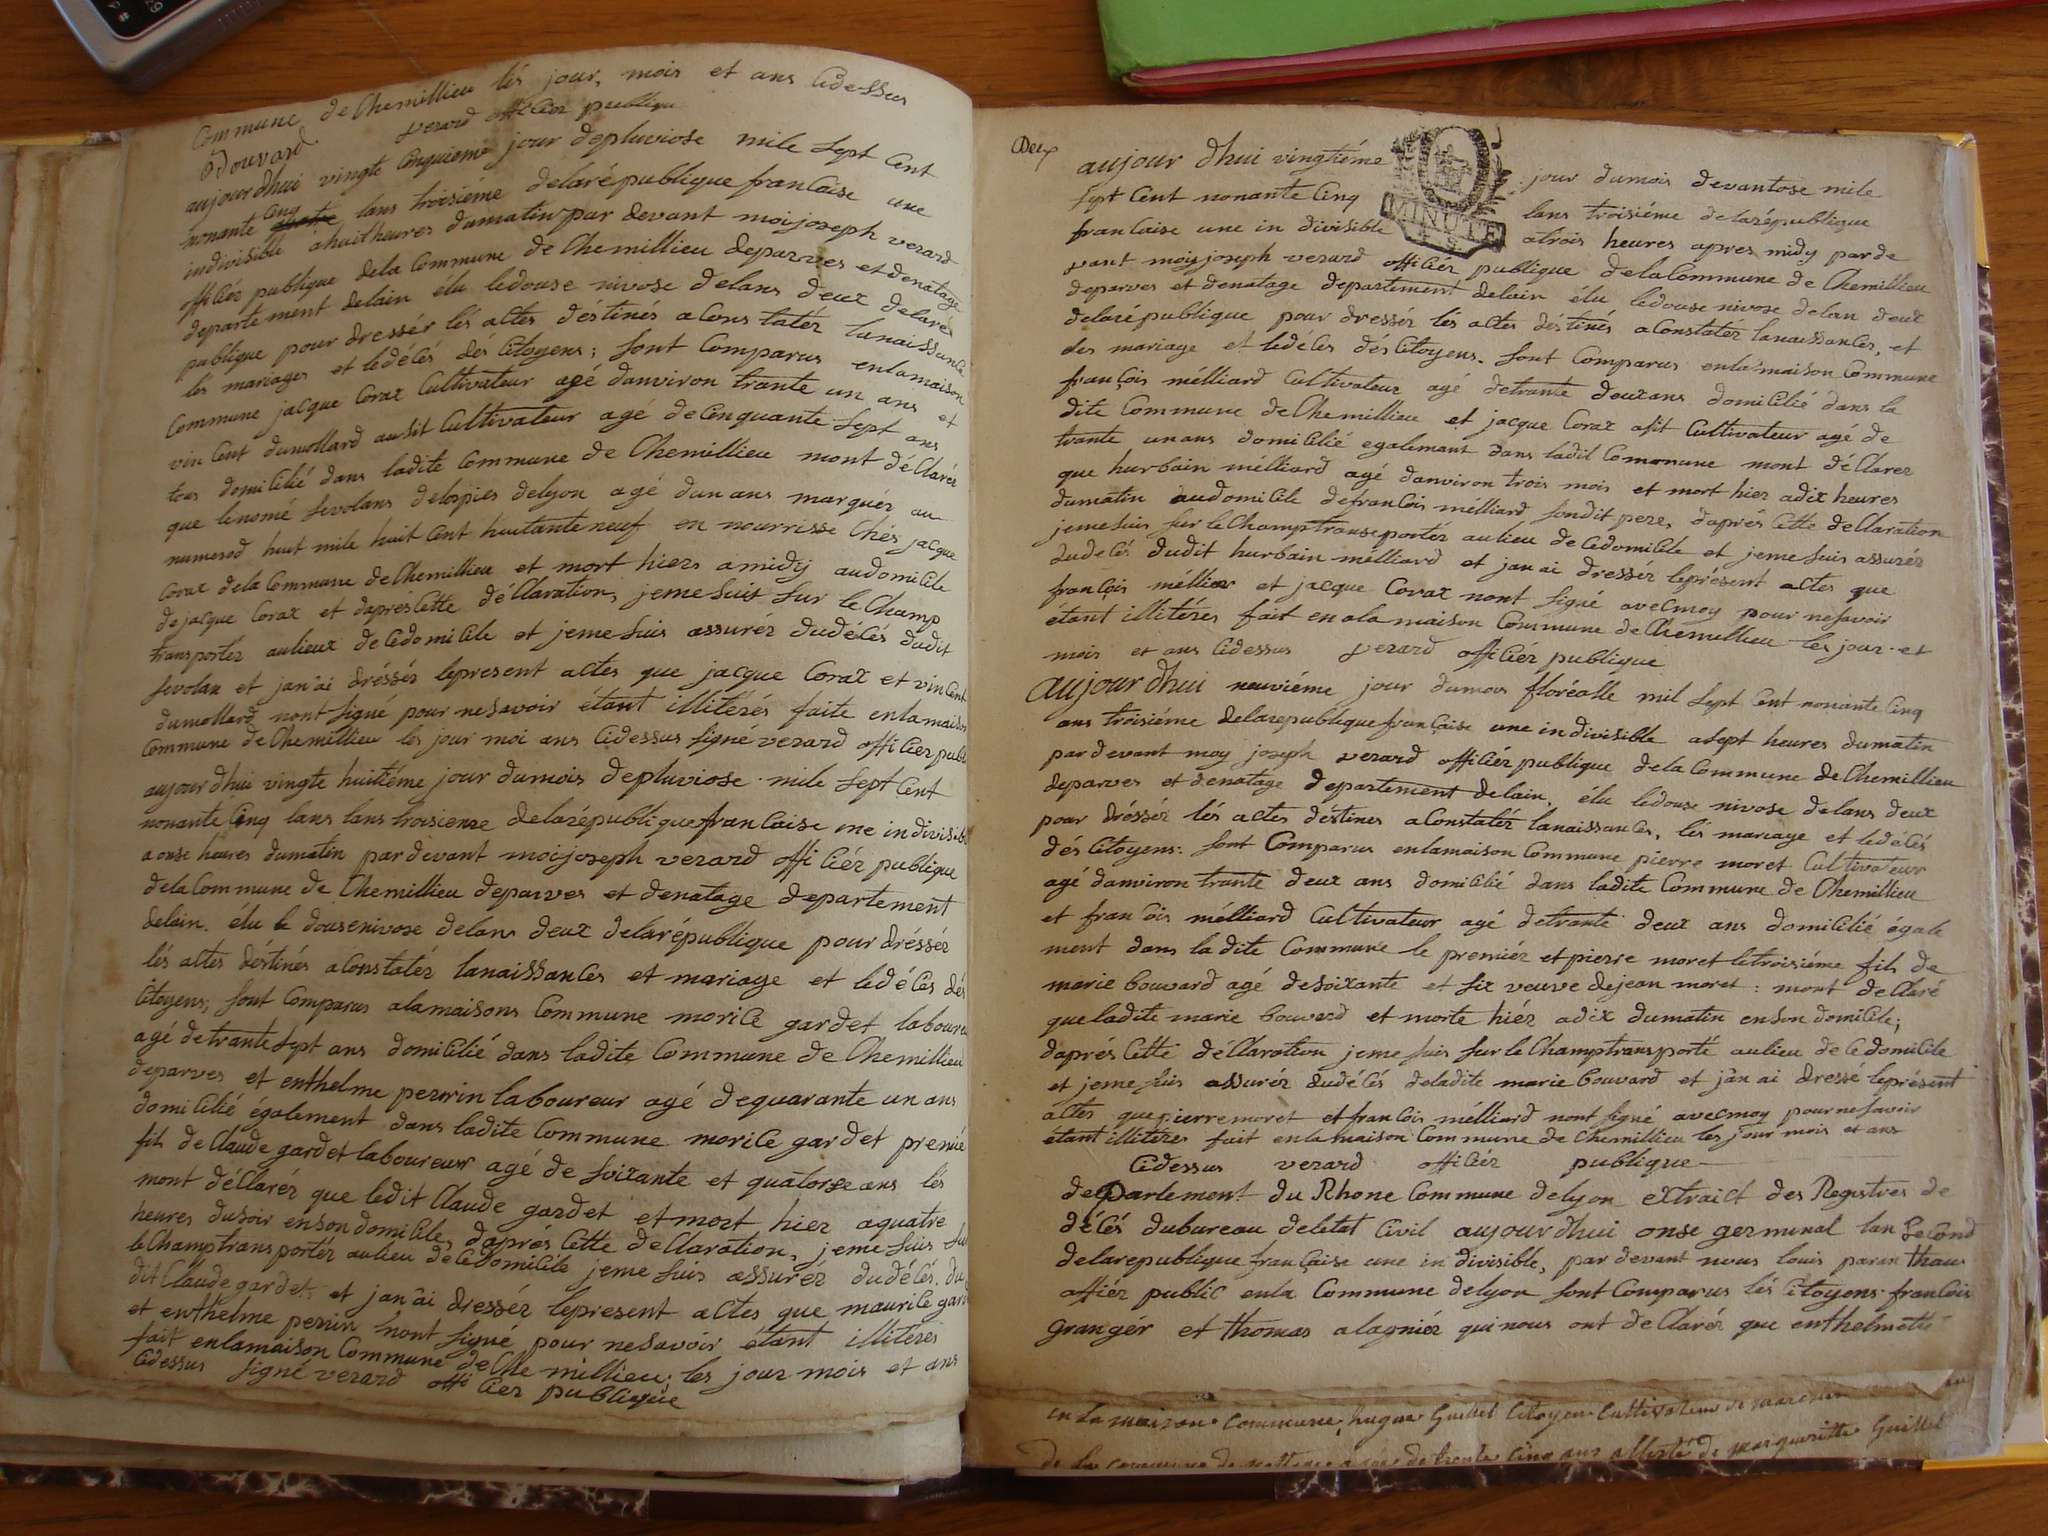 Commune de Chemillieu lés jour, mois et ans Cidessus
verard officiér publique
Bouvard
aujourdhui vingte Cinquieme jour depluviose mile sept Cent
nonante Cinq lans troisieme delarépublique francaise une
indivisible ahuit heures dumatin par devant moijoseph verard
officiér publique dela Commune de Chemillieu deparves et denatage
departement delain élu ledouse nivose delans deux delaré
publique pour dressér lés actes déstinés aConstatér lanaissance
les mariages et ledécés dés Citoyens; sont Comparus enlamaison
Commune jacque Corax Cultivateur agé danviron trante un ans et
vincent dumollard ausit Cultivateur agé deCinquante sept ans
tous domicilié dans ladite Commune de Chemillieu mont déClarér
que lenomé sevolans delospies delyon agé dun ans marquér au
numerod huit mile huit Cent huitante neuf en nourrisse Chés jacque
Corax dela Commune deChemillieu et mort hiers amidy audomicile
dejacque Corax et daprésCette déClaration, jemesuis sur le Champ
transportér aulieux deCedomicile et jemesuis assurér dudécés dudit
sevolan et jan'ai dréssér lepresent actes que jacque Corax et vincent
dumollard nont signé pour nesavoir étant illitérés faite enlamaison
Commune deChemillieu lés jour moi ans Cidessus signé verard officiér publi
aujourdhui vingte huitiéme jour dumois depluviose mile sept Cent
nonante Cinq lans lans troisieme delarépublique francaise une indivisible
aonse heures dumatin pardevant moijoseph verard officiér publique
delaCommune de Chemillieu deparves et denatage departement
delain. élu le dousenivose delans deux delarépublique pour dréssér
lés actes déstinés aConstatér lanaissances et mariage et ledécés dés
Citoyens; sont Comparus alamaisons Commune morice gardet laboureu
agé detrante sept ans domicilié dans ladite Commune de Chemillieu
deparves et enthelme perrin laboureur agé dequarante un ans
domicilié également dans ladite Commune morice gardet premié
fils deClaude gardet laboureur agé de soixante et quatorse ans lés
mont déClarér que ledit Claude gardet et mort hier aquatre
heures dusoir enson domicile, daprés Cette deClaration, jeme suis sur
leChamptransportér aulieu deCedomicile jeme suis assurér dudécés du
dit Claude gardet et jan'ai dressér lepresent actes que maurice gard
et enthelme perrin nont signé pour nesavoir étant illitérés
fait enlamaison Commune de Chemillieu; les jour mois et ans
Cidessus signé verard officiér publique
Deux
aujour dhui vingtiéme jour dumois devantose mile
sept Cent nonante Cinq lans troisiéme delarépublique
francaise une in divisible atrois heures apres midy parde
MINUTE
vant moyjoseph verard officiér publique delaCommune de Chemillieu
deparves et denatage departement delain élu ledouse nivose delan deux
delarépublique pour dressér lés actes déstinés aConstatér lanaissances, et
des mariage et ledéces désCitoyens. sont Comparus enlamaison Commune
françois mélliard Cultivateur agé detrante deuxans domicilié dans la
dite Commune deChemillieu et jacque Corax asit Cultivateur agé de
trante unans domicilié egalemant dans ladit Commune mont déClarer
que hurbain mélliard agé danviron trois mois et mort hier adix heures
dumatin audomicile defrancois mélliard sondit pere, daprés Cette deClaration
jemesuis sur leChamptransportér aulieu deCedomicile et jeme suis assurér
dudecés dudit hurbain mélliard et jan ai dressér leprésent actes que
françois mélliar et jacque Corax nont signé avecmoy pour nesavoir
étant illitérés fait en ala maison Commune de Chemillieu les jour et
mois et ans Cidessus verard officiér publique
aujourdhui neuviéme jour dumois floréalle mil sept Cent nonante Cinq
ans troisiéme delarepublique française une indivisible asept heures dumatin
pardevant moy joseph verard officiér publique dela Commune deChemillieu
deparves et denatage departement delain. élu ledouse nivose delans deux
pour dréssér lés actes déstines aConstatér lanaissances, lés mariage et ledécés
dés Citoyens: sont Comparus enlamaison Commune pierre moret Cultivateur
agé danviron trante deux ans domicilié dans ladite Commune de Chemillieu
et francois mélliard Cultivateur agé detrante deux ans domicilié égale
ment dans la dite Commune le premiér et pierre moret letroisiéme fils de
marie bouvard agé desoixante et six veuve dejean moret: mont deClaré
queladite marie bouvard et morte hiér adix dumatin enson domicile;
daprés Cette déClaration jeme suis sur leChamptransporté aulieu de Cedomicile
et jeme suis assurér dudécés deladite marie bouvard et jan ai dressé leprésent
actes que pierremoret et francois mélliard nont signé avecmoy pournesavoir
étant illitéres fait enlamaison Commune de Chemillieu les jour mois et ans
Cidessus verard officiér publique
departement du Rhone Commune delyon extraict des Registres de
décés dubureau deletat Civil aujourdhui onse germinal lan second
delarepublique française une in divisible, par devant nous louis paran thau
officiér public enla Commune delyon sont Comparus lés Citoyens francois
grangér et thomas alagniér quinous ont deClarér que enthelmette
en la maison Commune, hugue Guillet Citoyen Cultivateur
de la Commune de agé de trente Cinq ans de margueritte Guillet